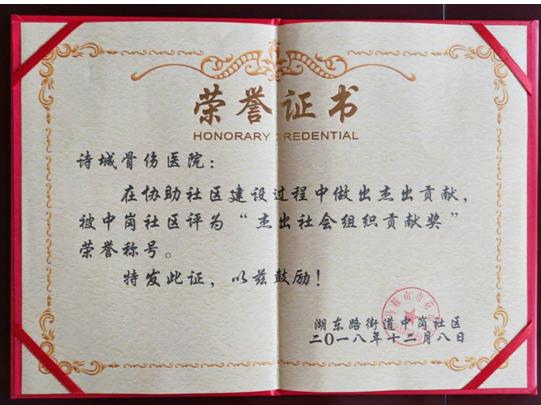 荣誉证书
HONORARY CREDENTIAL
诗城骨伤医院：
在协助社区建设过程中做出杰出贡献，
被中岗社区评为“杰出社会组织贡献奖”
荣誉称号。
特发此证，以兹鼓励！
湖东路街道中岗社区
二〇一八年十二月八日